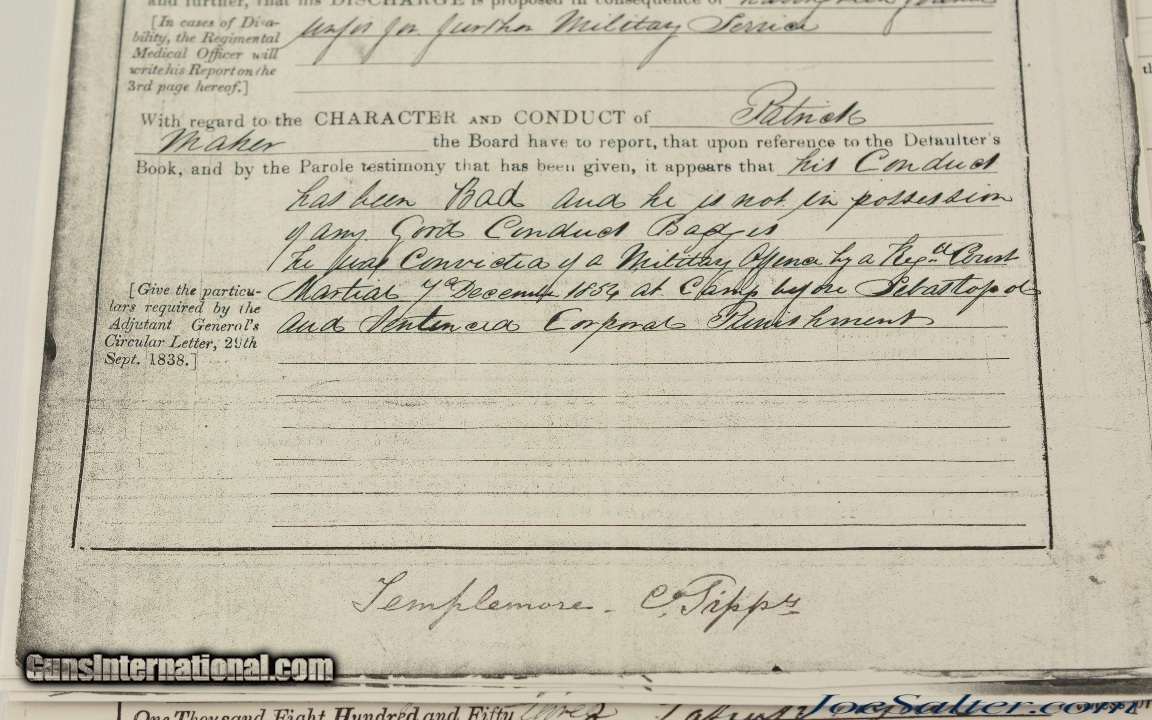 and further, that his DISCHARGE is proposed in consequence of having been found
[In cases of Disa-
bility, the Regimental
Medical Officer will
write his Report on the
3rd page hereof.]
unfit for further Military Service
With regard to the CHARACTER AND CONDUCT of Patrick
Maher the Board have to report, that upon reference to the Defaulter's
Book, and by the Parole testimony that has been given, it appears that his Conduct
has been Bad and he is not in possession
of any Good Conduct Badges
he was Convicted of a Military Offence by a Regtl Court
Martial 7th December 1854 at Camp before Sebastopol
and Sentenced Corporal Punishment
[Give the particu-
lars required by the
Adjutant General's
Circular Letter, 29th
Sept. 1838.]
Templemore - Co. Tippy
GunsInternational.com
One Thousand Eight Hundred and Fifty
JoeSalter.com